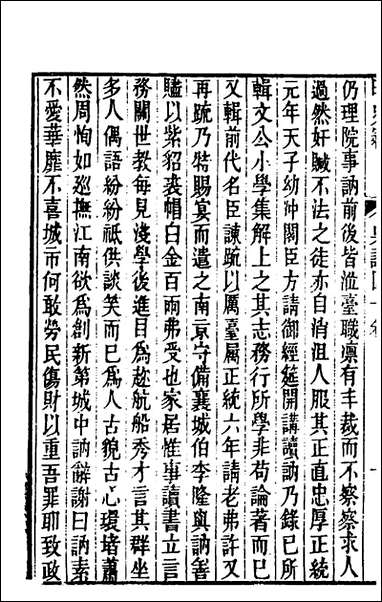 仍理院事訥前後皆涖臺職凛有丰裁而不察察求人
過然奸贓不法之徒亦自消沮人服其正直忠厚正統
元年天子幼冲閣臣方請御經筵開講讀訥乃錄已所
輯文公小學集解上之其志務行所學非苟論著而已
又輯前代名臣諫疏以厲臺屬正統六年請老弗許又
再疏乃特賜宴而遣之南京守備襄城伯李隆與訥善
贐以紫貂裘帽白金百兩弗受也家居惟事讀書立言
務關世教每見淺學後進目爲趂航船秀才言其群坐
多人偶語紛紛祗供談笑而已爲人古貌古心環堵蕭
然周恂如廵撫江南欲爲創新第城中訥辭謝曰訥素
不愛華靡不喜城市何敢勞民傷財以重吾罪耶致政